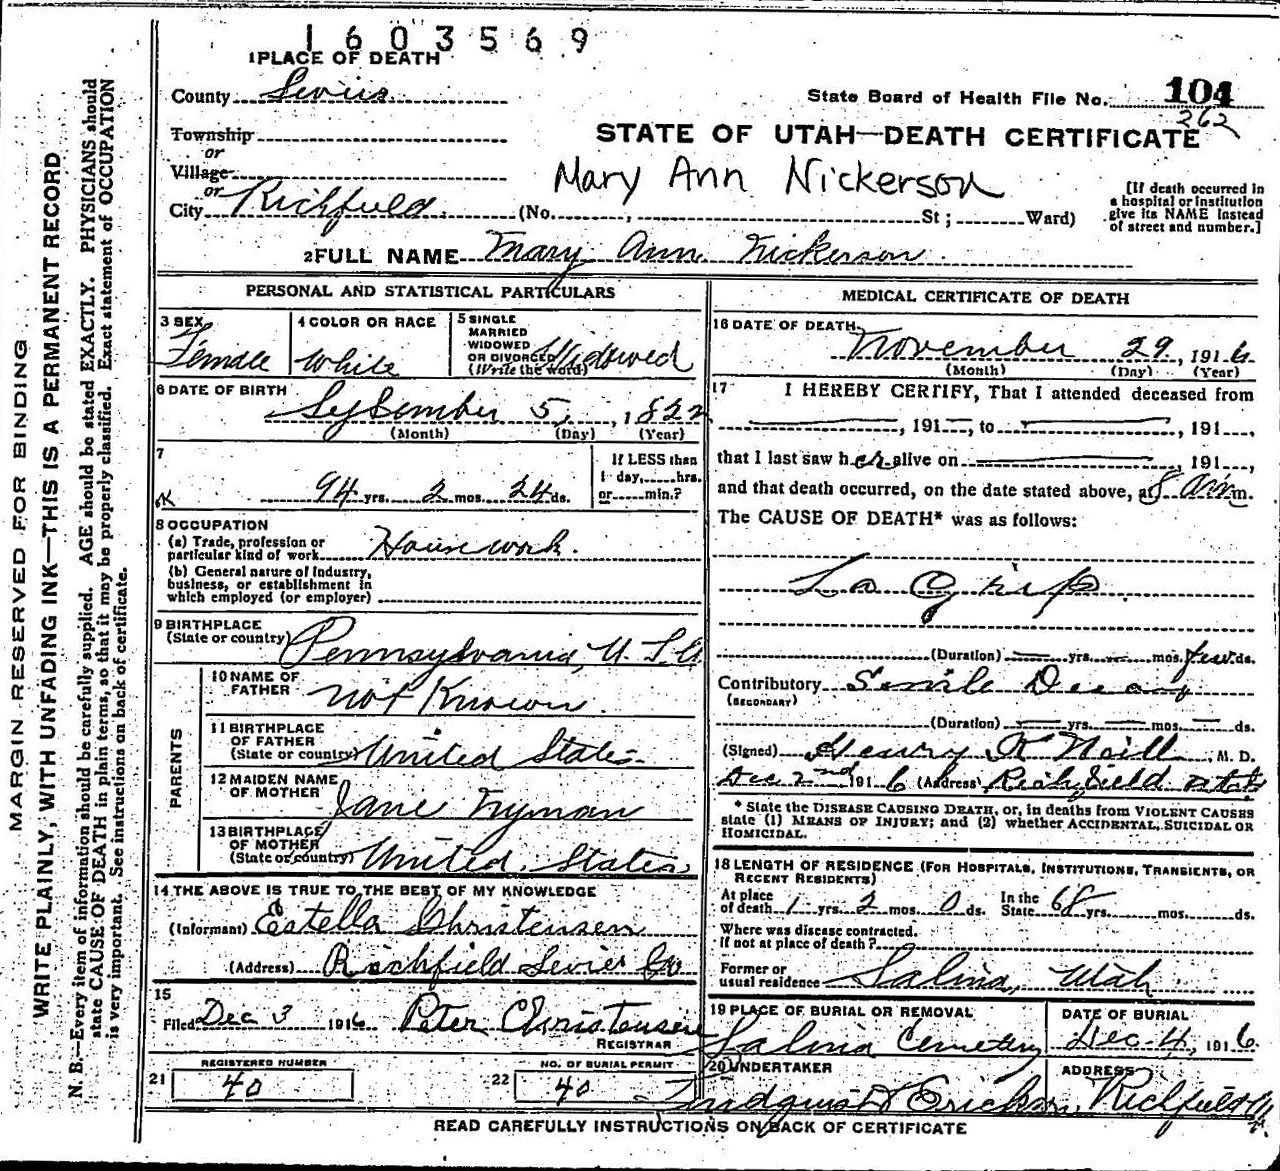 1603569
1 PLACE OF DEATH
County Sevier
State Board of Health File No. 104
262
Township
or
Village
or
City Richfield (No. , St; Ward)
STATE OF UTAH—DEATH CERTIFICATE
Mary Ann Nickerson
[If death occurred in
a hospital or institution
give its NAME instead
of street and number.]
2 FULL NAME Mary Ann Nickerson
PERSONAL AND STATISTICAL PARTICULARS
3 SEX
Female
4 COLOR OR RACE
White
5 SINGLE
MARRIED
WIDOWED
OR DIVORCED
(Write the word)
Widowed
6 DATE OF BIRTH
September 5, 1822
(Month) (Day) (Year)
7
94 yrs. 2 mos. 24 ds.
If LESS than
1 day, hrs.
or min.?
8 OCCUPATION
(a) Trade, profession or
particular kind of work Housework.
(b) General nature of industry,
business, or establishment in
which employed (or employer)
9 BIRTHPLACE
(State or country) Pennsylvania, U.S.A
PARENTS
10 NAME OF
FATHER not Known.
11 BIRTHPLACE
OF FATHER
(State or country) United States.
12 MAIDEN NAME
OF MOTHER Jane Nyman
13 BIRTHPLACE
OF MOTHER
(State or country) United States
14 THE ABOVE IS TRUE TO THE BEST OF MY KNOWLEDGE
(Informant) Estella Christensen
(Address) Richfield Sevier Co
15
Filed Dec 3 1916 Peter Christensen
REGISTRAR
REGISTERED NUMBER
21 40
NO. OF BURIAL PERMIT
22 40
MEDICAL CERTIFICATE OF DEATH
16 DATE OF DEATH
November 29, 1916
(Month) (Day) (Year)
17 I HEREBY CERTIFY, That I attended deceased from
, 191 , to , 191 ,
that I last saw her alive on , 191 ,
and that death occurred, on the date stated above, at 8 am m.
The CAUSE OF DEATH* was as follows:
La Grip
(Duration) yrs. mos. few ds.
Contributory Senile Decay
(SECONDARY)
(Duration) yrs. mos. ds.
(Signed) Henry K Neill, M. D.
Dec 2nd 1916 (Address) Richfield Utah
* State the DISEASE CAUSING DEATH, or, in deaths from VIOLENT CAUSES
state (1) MEANS OF INJURY; and (2) whether ACCIDENTAL, SUICIDAL OR
HOMICIDAL.
18 LENGTH OF RESIDENCE (FOR HOSPITALS, INSTITUTIONS, TRANSIENTS, OR
RECENT RESIDENTS)
At place
of death 1 yrs. 2 mos. 0 ds. In the State 68 yrs. mos. ds.
Where was disease contracted.
if not at place of death?
Former or
usual residence Salina, Utah
19 PLACE OF BURIAL OR REMOVAL
Salina Cemetery
DATE OF BURIAL
Dec 4, 1916
20 UNDERTAKER
Lindquist & Erickson,
ADDRESS
Richfield
READ CAREFULLY INSTRUCTIONS ON BACK OF CERTIFICATE
MARGIN RESERVED FOR BINDING
WRITE PLAINLY, WITH UNFADING INK—THIS IS A PERMANENT RECORD
N. B.—Every item of information should be carefully supplied. AGE should be stated EXACTLY. PHYSICIANS should
state CAUSE OF DEATH in plain terms, so that it may be properly classified. Exact statement of OCCUPATION
is very important. See instructions on back of certificate.